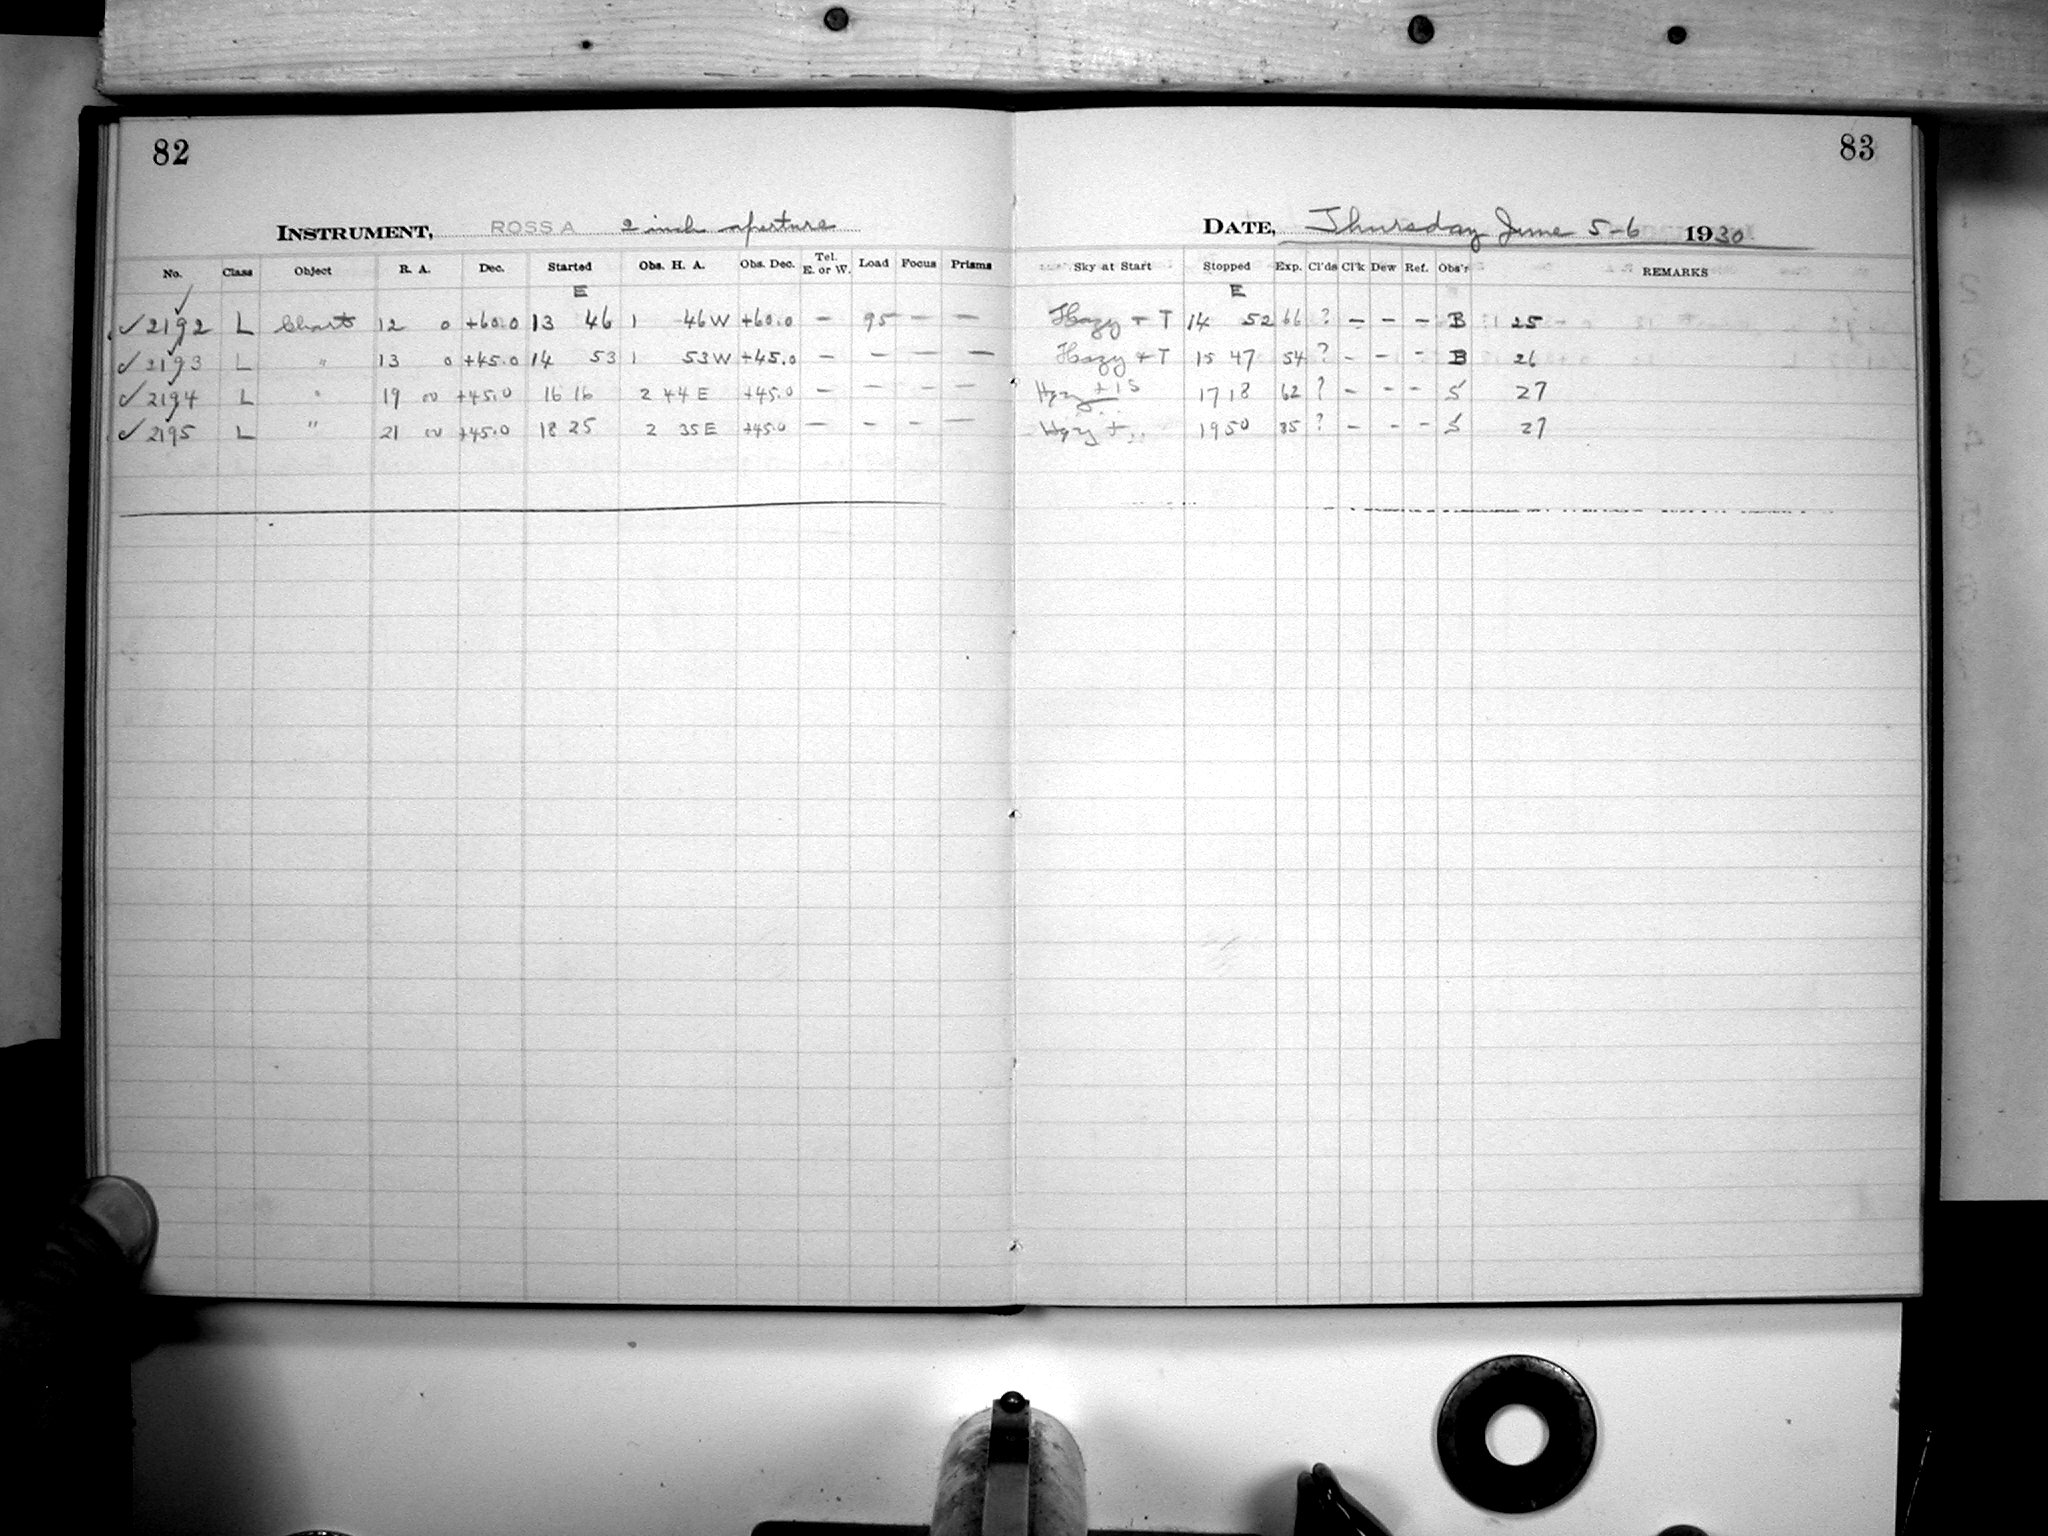 82
83
INSTRUMENT, ROSS A 2 inch aperture
DATE, Thursday June 5-6 1930
No. Class Object R. A. Dec. Started Obs. H. A. Obs. Dec. Tel. E. or W. Load Focus Prisms Sky at Start Stopped Exp. Cl'ds Cl'k Dew Ref. Obs'r REMARKS
E E
✓2192 L Chart 12 0 +60.0 13 46 1 46 W +60.0 – 95 – – Hazy + T 14 52 66 ? – – – B 25
✓2193 L " 13 0 +45.0 14 53 1 53 W +45.0 – – – – Hazy + T 15 47 54 ? – – – B 26
✓2194 L " 19 00 +45.0 16 16 2 44 E +45.0 – – – – Hazy 17 18 62 ? – – – S 27
✓2195 L " 21 00 +45.0 18 25 2 35 E +45.0 – – – – Hazy + 19 50 85 ? – – – S 27